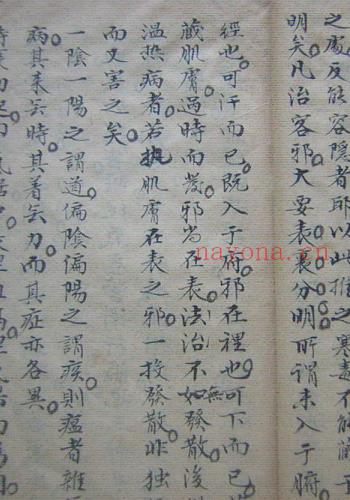 之處反能容隱者耶以此推之寒毒不能藏于
明矣。凡治客邪大要表裏分明所謂未入于腑
經也。可汗而已。既入于府。邪在裡也。可下而已。
藏肌膚。過時而發。邪尚在表。法治不無發散。後
溫热病者。若执肌膚在表之邪一投發散。非独
而又害之矣。
一陰一陽之謂道。偏陰偏陽之謂疾。則瘟者雜
病。其来去時。其着去力。而其症亦各異。
nayona.cn